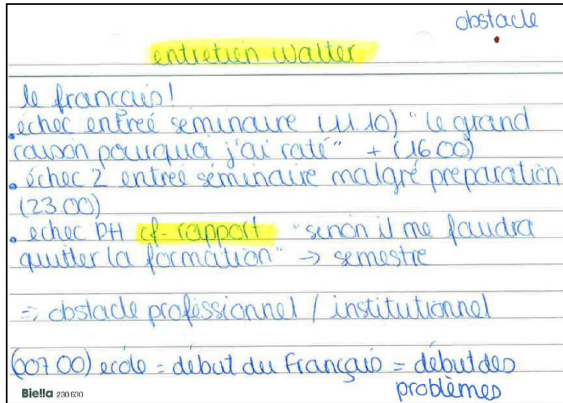 obstacle
entretien Walter
le français!
. échec entreé séminaire (11.10) "le grand
raison pourquoi j'ai raté" + (16 00)
. échec 2 entreé séminaire malgré preparation
(23 00)
. echec PH cf. rapport "sinon il me faudra
quitter la formation" → semestre
⇒ obstacle professionnel / institutionnel
(007 00) ecole = début du Français = début des
problèmes
Biella 230 600